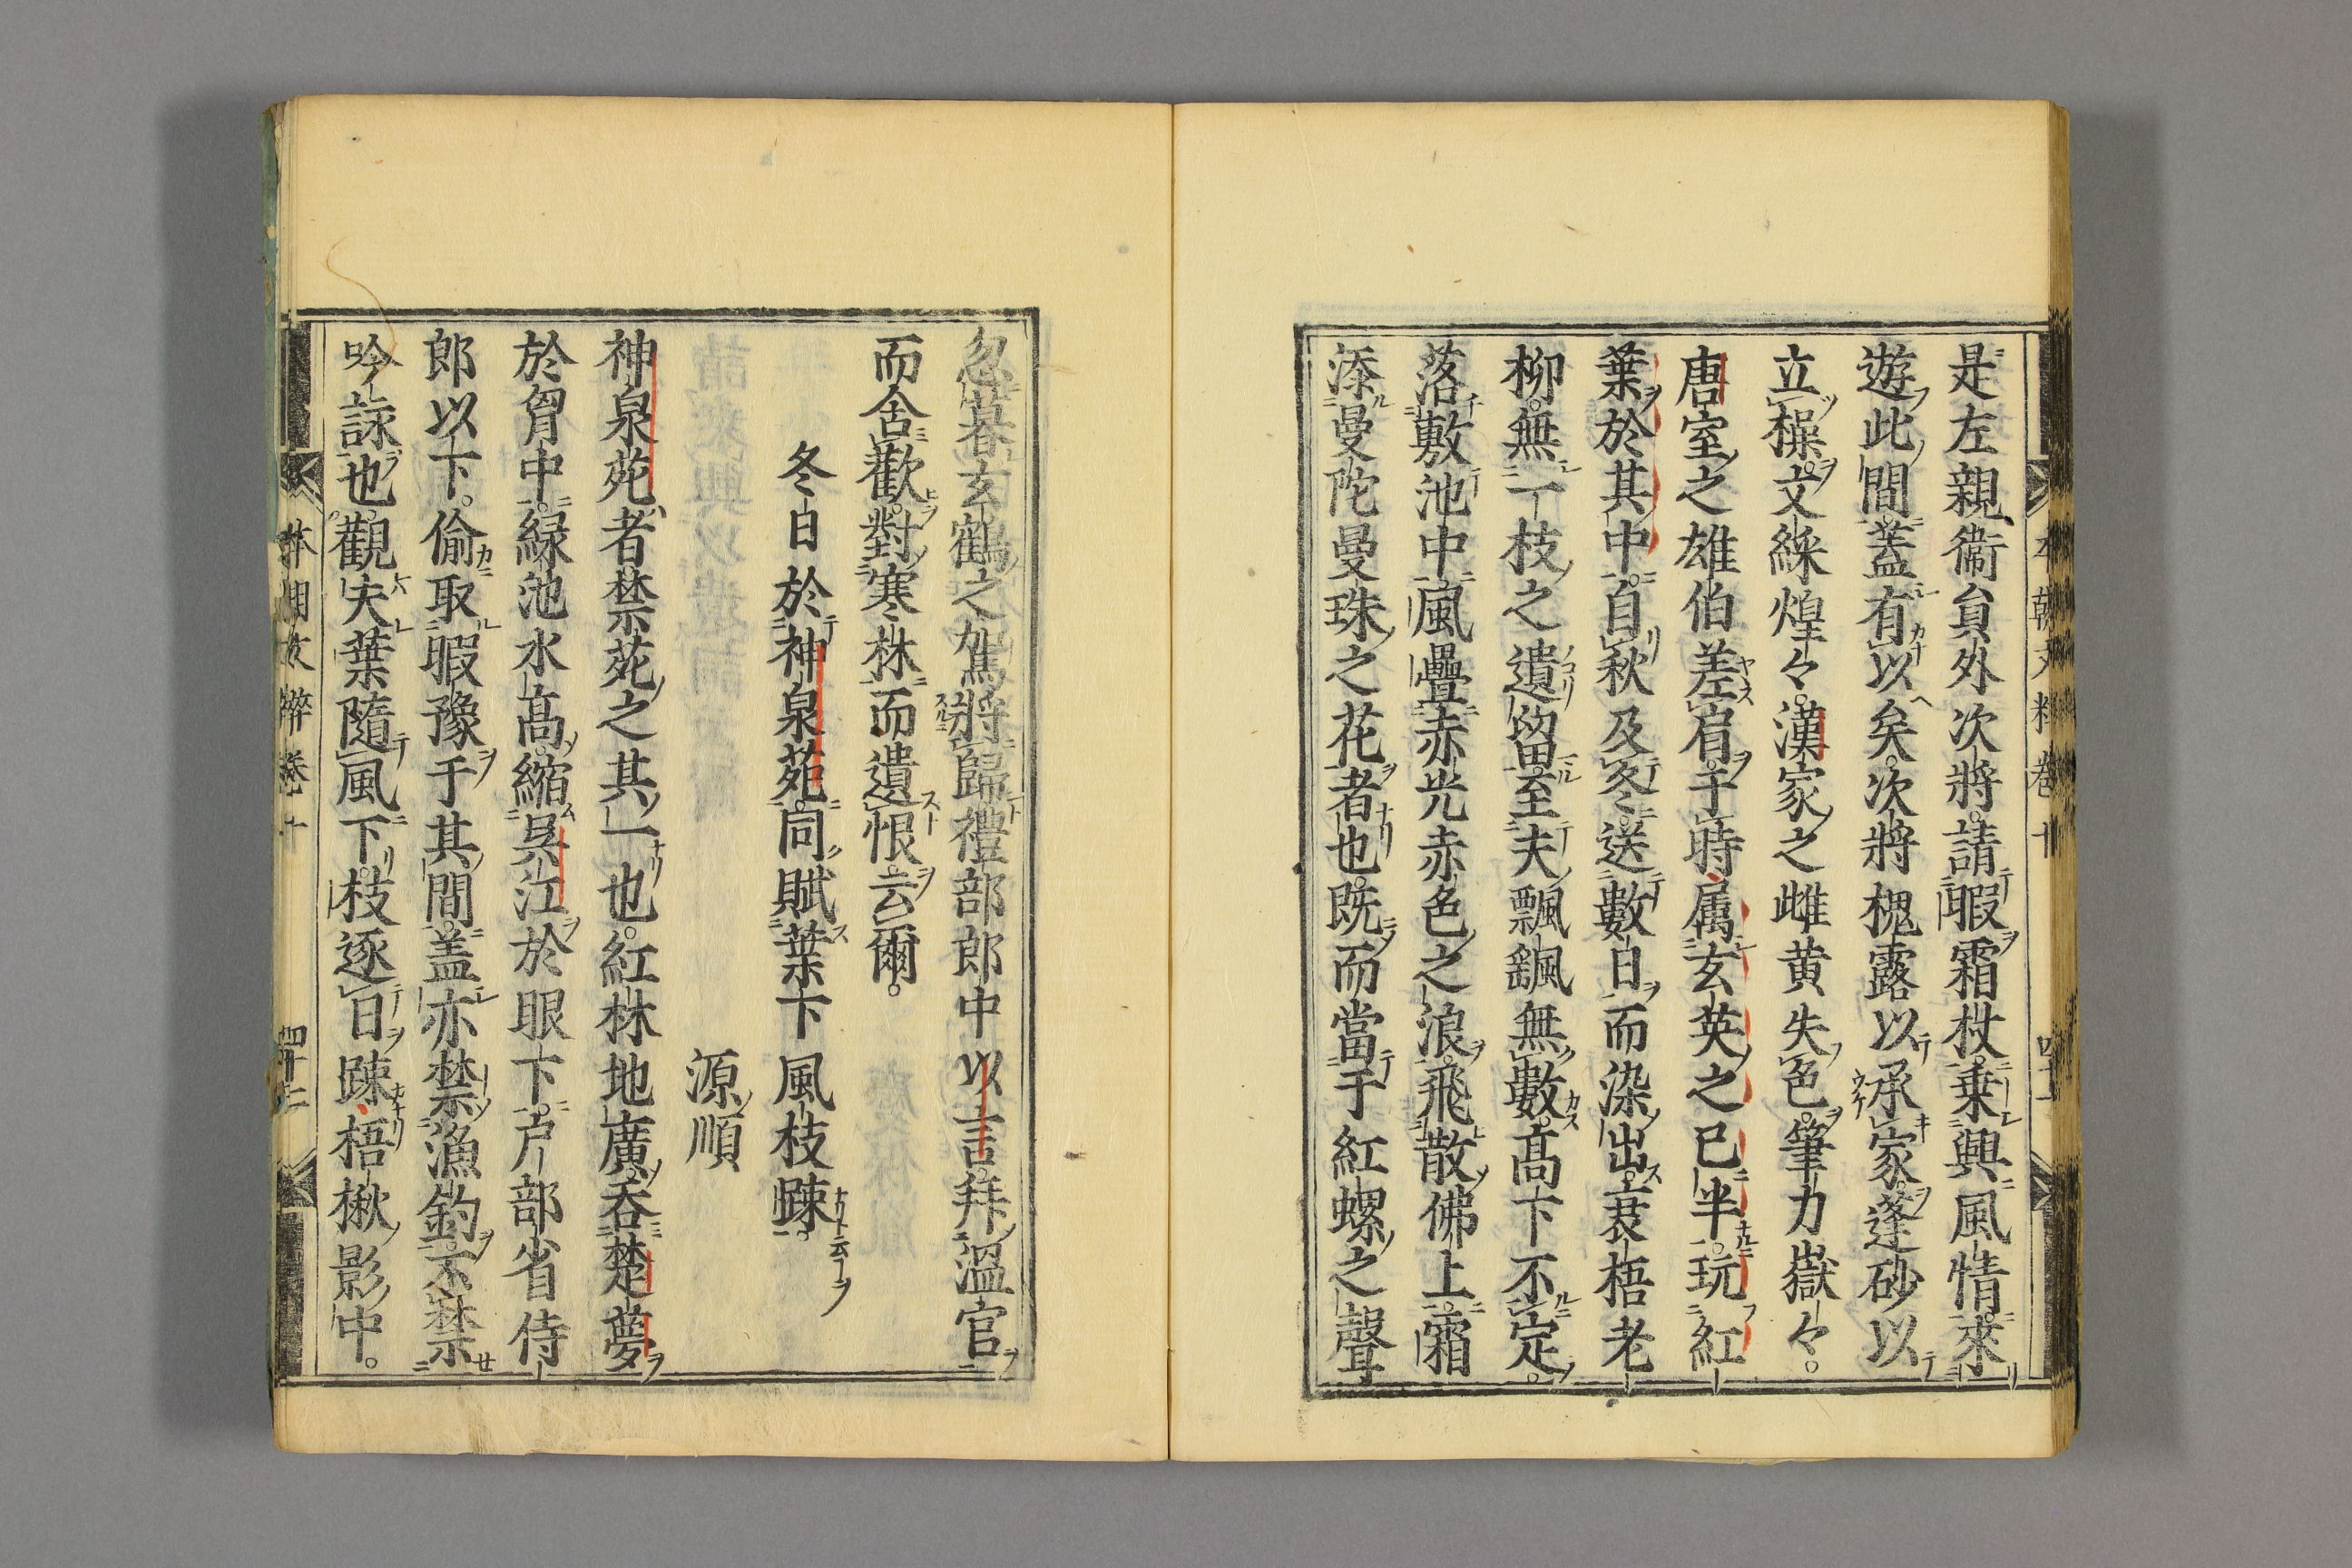 本朝文粹卷十 四十一
是左親衞員外次將。請暇霜杖。乗興風情。來
遊此間。蓋有以矣。次將槐露以承家。蓬砂以
立櫸。文綵煌々。漢家之雌黄失色。筆力嶽々。
唐室之雄伯差肩。于時属玄英之已半。玩紅
葉於其中。自秋及冬。送數日而染出。衰梧老
柳。無一枝之遺留。至夫飄颻無數。高下不定。
落敷池中。風疊赤光赤色之浪。飛散佛上。霜
添曼陀曼珠之花者也。既而當于紅螺之聲
忽暮。玄鶴之駕將歸。禮部郎中以言。拜温官
而含歡。對寒林而遺恨。云爾。
冬日於神泉苑。同賦葉下風枝踈。
源順
神泉苑者禁苑之其一也。紅林地廣。呑楚夢
於胷中。緑池水高。縮吳江於眼下。戸部省侍
郎以下。偷取暇豫于其間。盖亦禁漁釣。不禁
吟詠也。觀夫葉隨風下。枝逐日踈。梧楸影中。
本朝文粹卷十 四十二